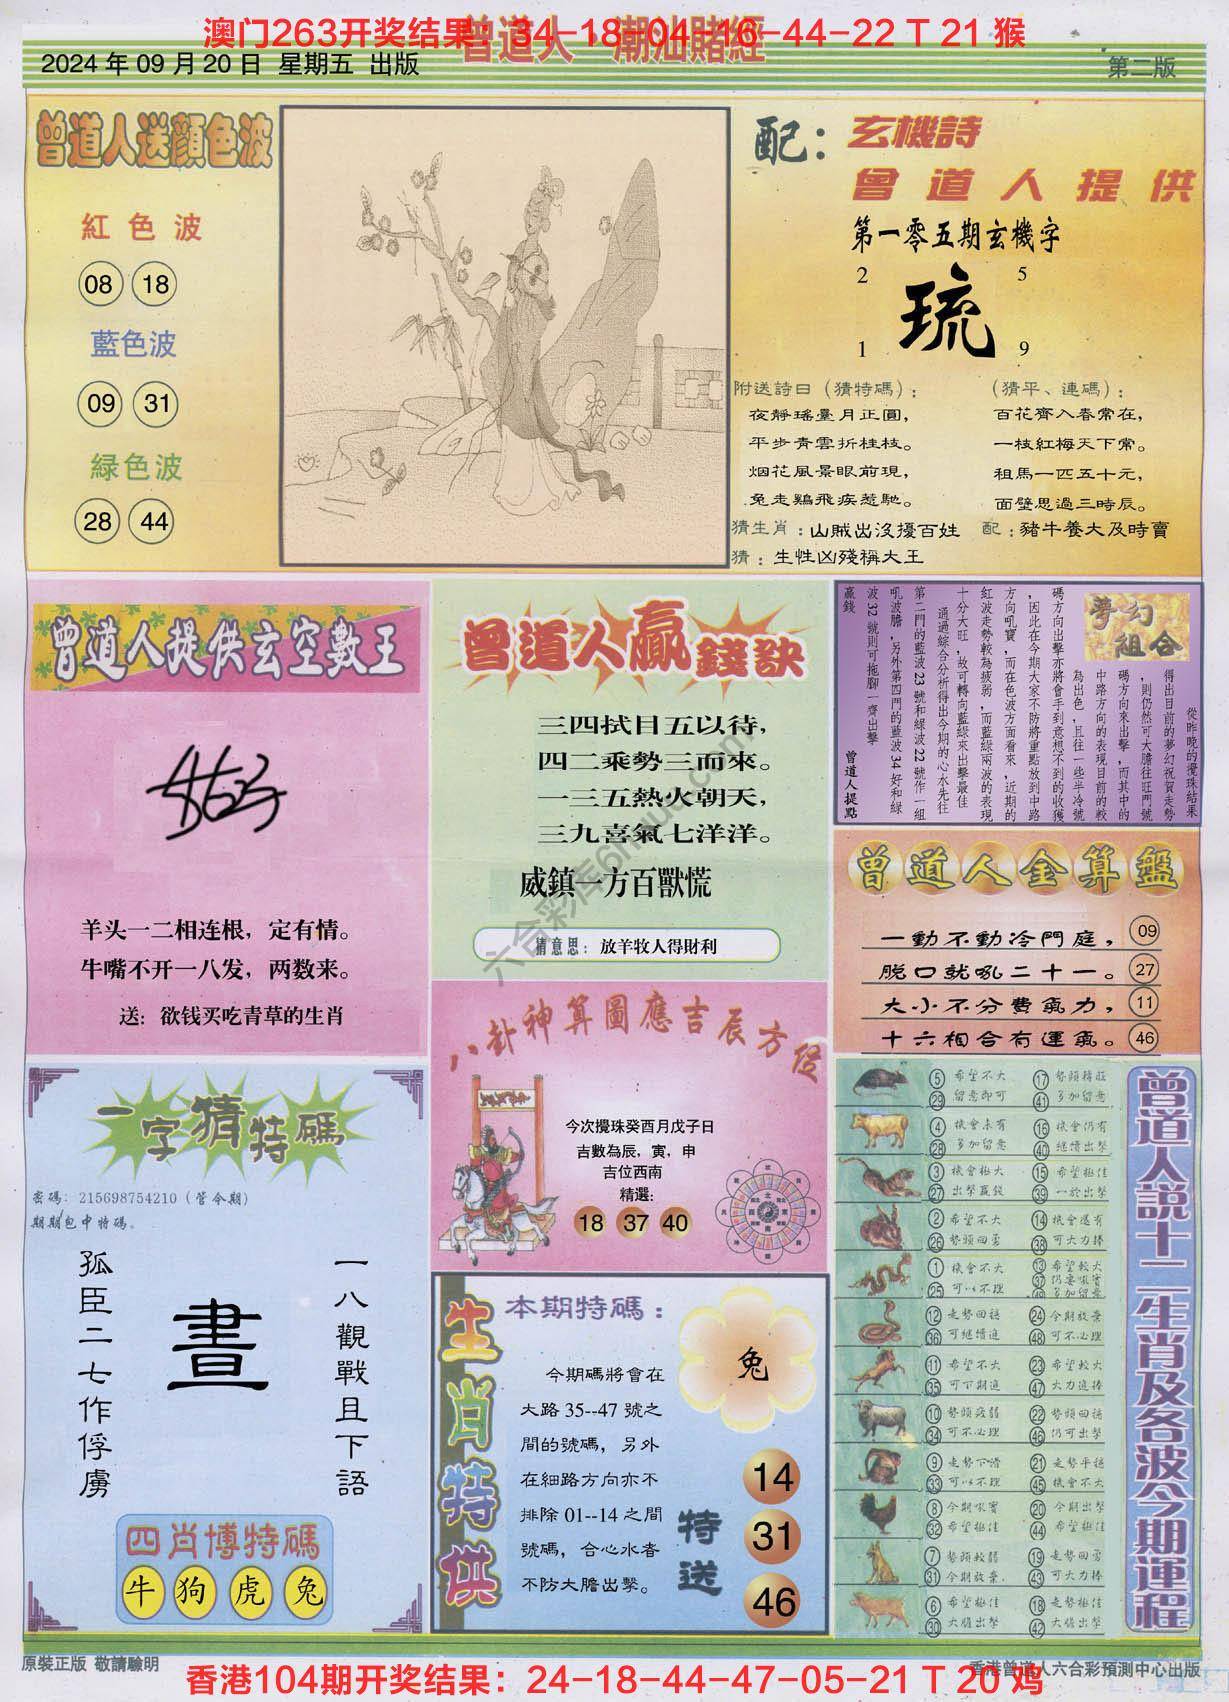 澳门263开奖结果：34-18-04-16-44-22 T 21 猴
曾道人 潮汕賭經
2024 年 09 月 20 日 星期五 出版
第二版
曾道人送顏色波
紅色波
08 18
藍色波
09 31
緑色波
28 44
配：玄機詩
曾道人提供
第一零五期玄機字
2 5
琉
1 9
附送詩曰（猜特碼）：
夜靜瑤臺月正圓，
平步青雲折桂枝。
烟花風景眼前現，
兔走鷄飛疾惹馳。
（猜平、連碼）：
百花齊入春常在，
一枝紅梅天下常。
租馬一匹五十元，
面壁思過三時辰。
猜生肖：山賊出沒擾百姓 配：豬牛養大及時賣
猜：生性凶殘稱大王
曾道人提供玄空數王
羊头一二相连根，定有情。
牛嘴不开一八发，两数来。
送：欲钱买吃青草的生肖
曾道人贏錢訣
三四拭目五以待，
四二乘勢三而來。
一三五熱火朝天，
三九喜氣七洋洋。
威鎮一方百獸慌
猜意思：放羊牧人得財利
夢幻組合
從昨晚的攪珠結果
得出目前的夢幻祝賀走勢
，則仍然可大膽往旺門號
碼方向來出擊，而其中的
中路方向的表現目前的較
為出色，且往一些半冷號
碼方向出擊亦將會手到意想不到的收獲
，因此在今期大家不防將重點放到中路
方向吼寶，而在色波方面看來，近期的
紅波走勢較為疲弱，而藍綠兩波的表現
十分大旺，故可轉向藍綠來出擊最佳
通過綜合分析得出今期的心水先往
第二門的藍波23號和綠波22號作一組
吼波膽，另外第四門的藍波34好和綠
波32號則可拖腳一齊出擊
贏錢
曾道人提點
曾道人金算盤
一動不動冷門庭， 09
脫口就吼二十一。 27
大小不分費氣力， 11
十六相合有運氣。 46
一字猜特碼
密碼：215698754210（管令期）
期期包中特碼。
一八觀戰且下語
晝
孤臣二七作俘虜
四肖博特碼
牛 狗 虎 兔
八卦神算圖應吉辰方位
今次攪珠癸酉月戊子日
吉數為辰，寅，申
吉位西南
精選：
18 37 40
生肖特供
本期特碼：
兔
今期碼將會在
大路 35--47 號之
間的號碼，另外
在細路方向亦不
排除 01--14 之間
號碼，合心水者
不防大膽出擊。
特送
14
31
46
曾道人說十二生肖及各波今期運程
5 希望不大 17 勢頭精旺
29 留意即可 41 多加留意
4 機會未有 16 機會仍有
28 多加留意 40 繼續出擊
3 機會極大 15 希望極佳
27 出擊贏錢 39 一於出擊
2 希望不大 14 機會還有
26 勢頭回勇 38 可大力捧
1 機會不大 13 希望較大
25 可以不理 37 仍要吼實
多加留意
12 走勢回穩 24 今期放棄
36 可繼續追 48 可不必理
11 希望不大 23 希望較大
35 可下期追 47 大力追捧
10 勢頭疲弱 22 勢頭回穩
34 可不必理 46 仍可出擊
9 走勢下滑 21 走勢平穩
33 可以不理 45 機會不大
8 今期吼實 20 今期出擊
32 希望極佳 44 希望極佳
7 勢頭較弱 19 走勢回勇
31 今期放棄. 43 可大力捧
6 希望極佳 18 走勢極佳
30 大膽出擊 42 大膽出擊
六合彩库6htuk.com
原裝正版 敬請驗明
香港曾道人六合彩預測中心出版
香港104期开奖结果：24-18-44-47-05-21 T 20 鸡